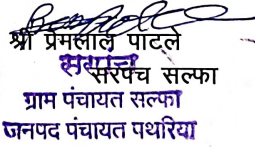 श्री प्रेमलाल पाटले
सरपंच
सरपंच सल्फा
ग्राम पंचायत सल्फा
जनपद पंचायत पथरिया